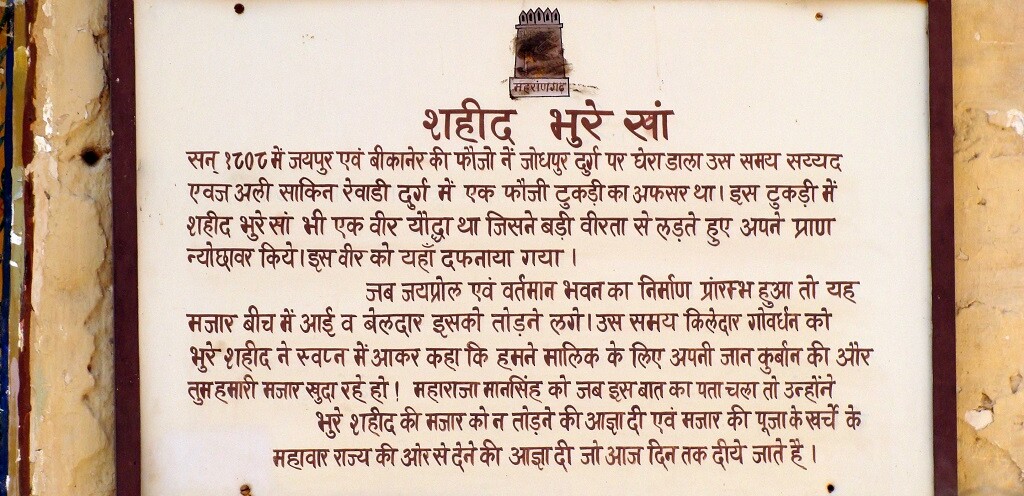 मेहरांणगढ़
शहीद भुरे खां
सन् १८०८ में जयपुर एवं बीकानेर की फौजो नें जोधपुर दुर्ग पर घेरा डाला उस समय सय्यद
एवज अली साकिन रेवाडी दुर्ग में एक फौजी टुकड़ी का अफसर था। इस टुकड़ी में
शहीद भुरे खां भी एक वीर यौद्धा था जिसने बड़ी वीरता से लड़ते हुए अपने प्राण
न्योछावर किये। इस वीर को यहाँ दफनाया गया ।
जब जयप्रोल एवं वर्तमान भवन का निर्माण प्रांरम्भ हुआ तो यह
मजार बीच में आई व बेलदार इसको तोड़ने लगे। उस समय किलेदार गोवर्धन को
भुरे शहीद ने स्वप्न में आकर कहा कि हमने मालिक के लिए अपनी जान कुर्बान की और
तुम हमारी मजार खुदा रहे हो! महाराजा मानसिंह को जब इस बात का पता चला तो उन्होंने
भुरे शहीद की मजार को न तोड़ने की आज्ञा दी एवं मजार की पूजा के खर्चे के
महावार राज्य की ओर से देने की आज्ञा दी जो आज दिन तक दीये जाते है।